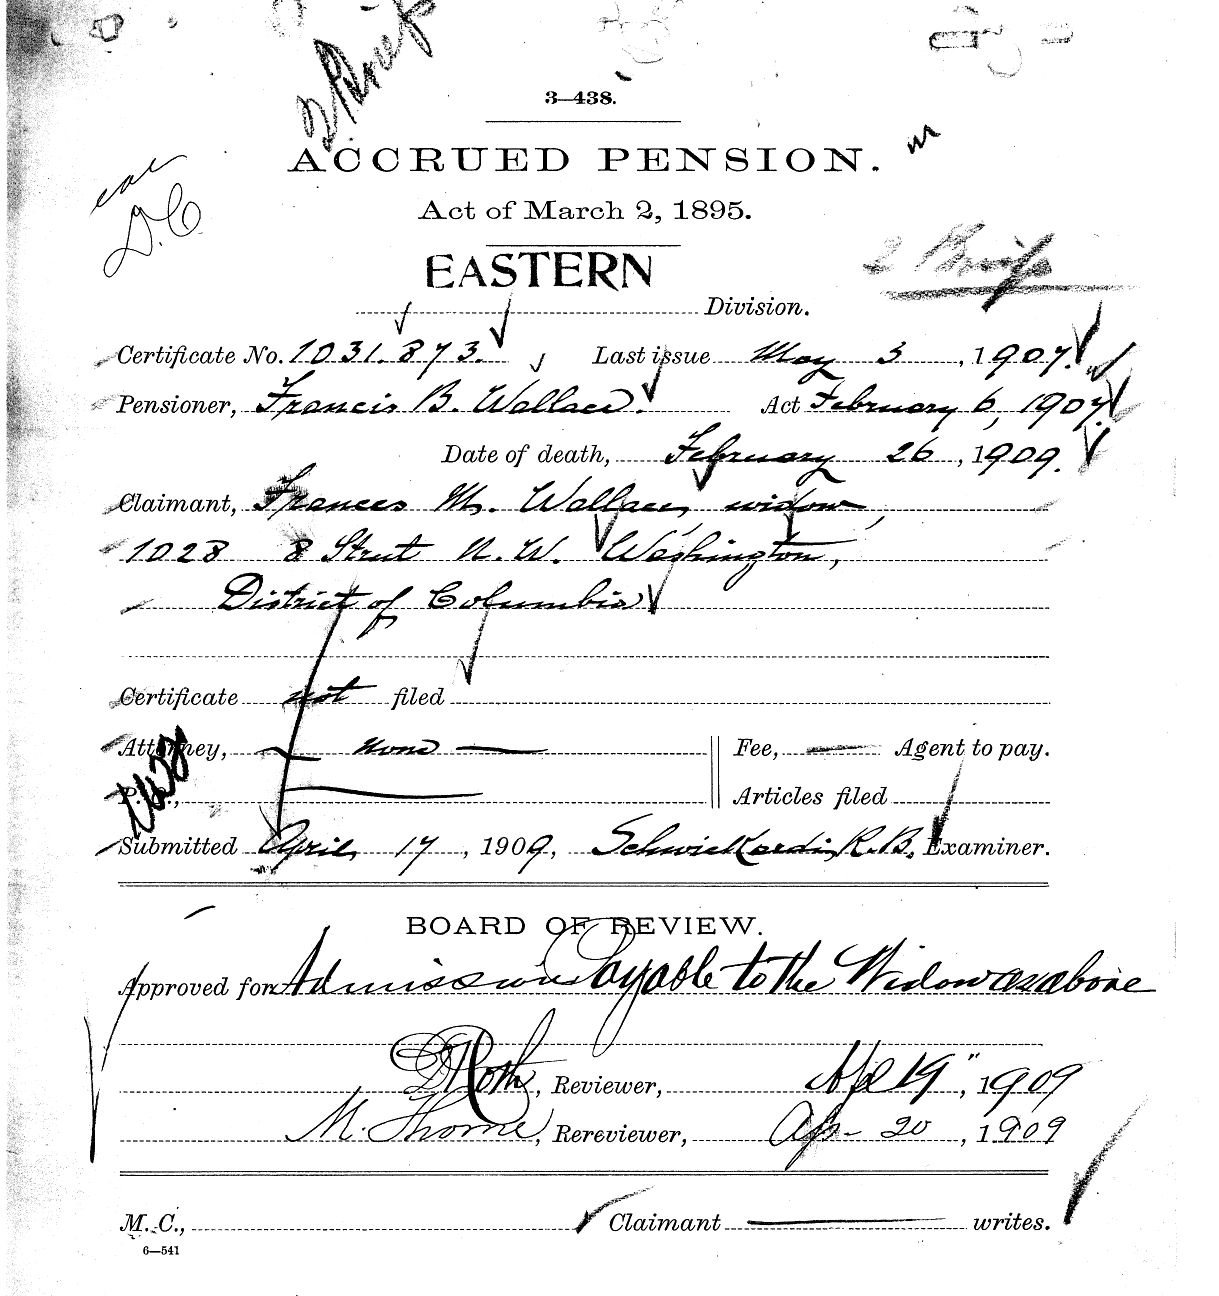 3—438.
ACCRUED PENSION.
Act of March 2, 1895.
D.C.
2 Briefs
EASTERN
Division.
Certificate No. 1031.873. Last issue May 3, 1907.
Pensioner, Francis B. Wallace. Act February 6, 1907.
Date of death, February 26, 1909.
Claimant, Frances M. Wallace, widow,
1028 8 Street N.W. Washington,
District of Columbia
Certificate not filed
Attorney, none Fee, Agent to pay.
P. O., Articles filed
Submitted April 17, 1909, Schwickardi, R.B. Examiner.
BOARD OF REVIEW.
Approved for Admission Payable to the Widow as above
Roth, Reviewer, Apl 19", 1909
M. Thorne, Rereviewer, Ap- 20, 1909
M. C., Claimant writes.
6—541